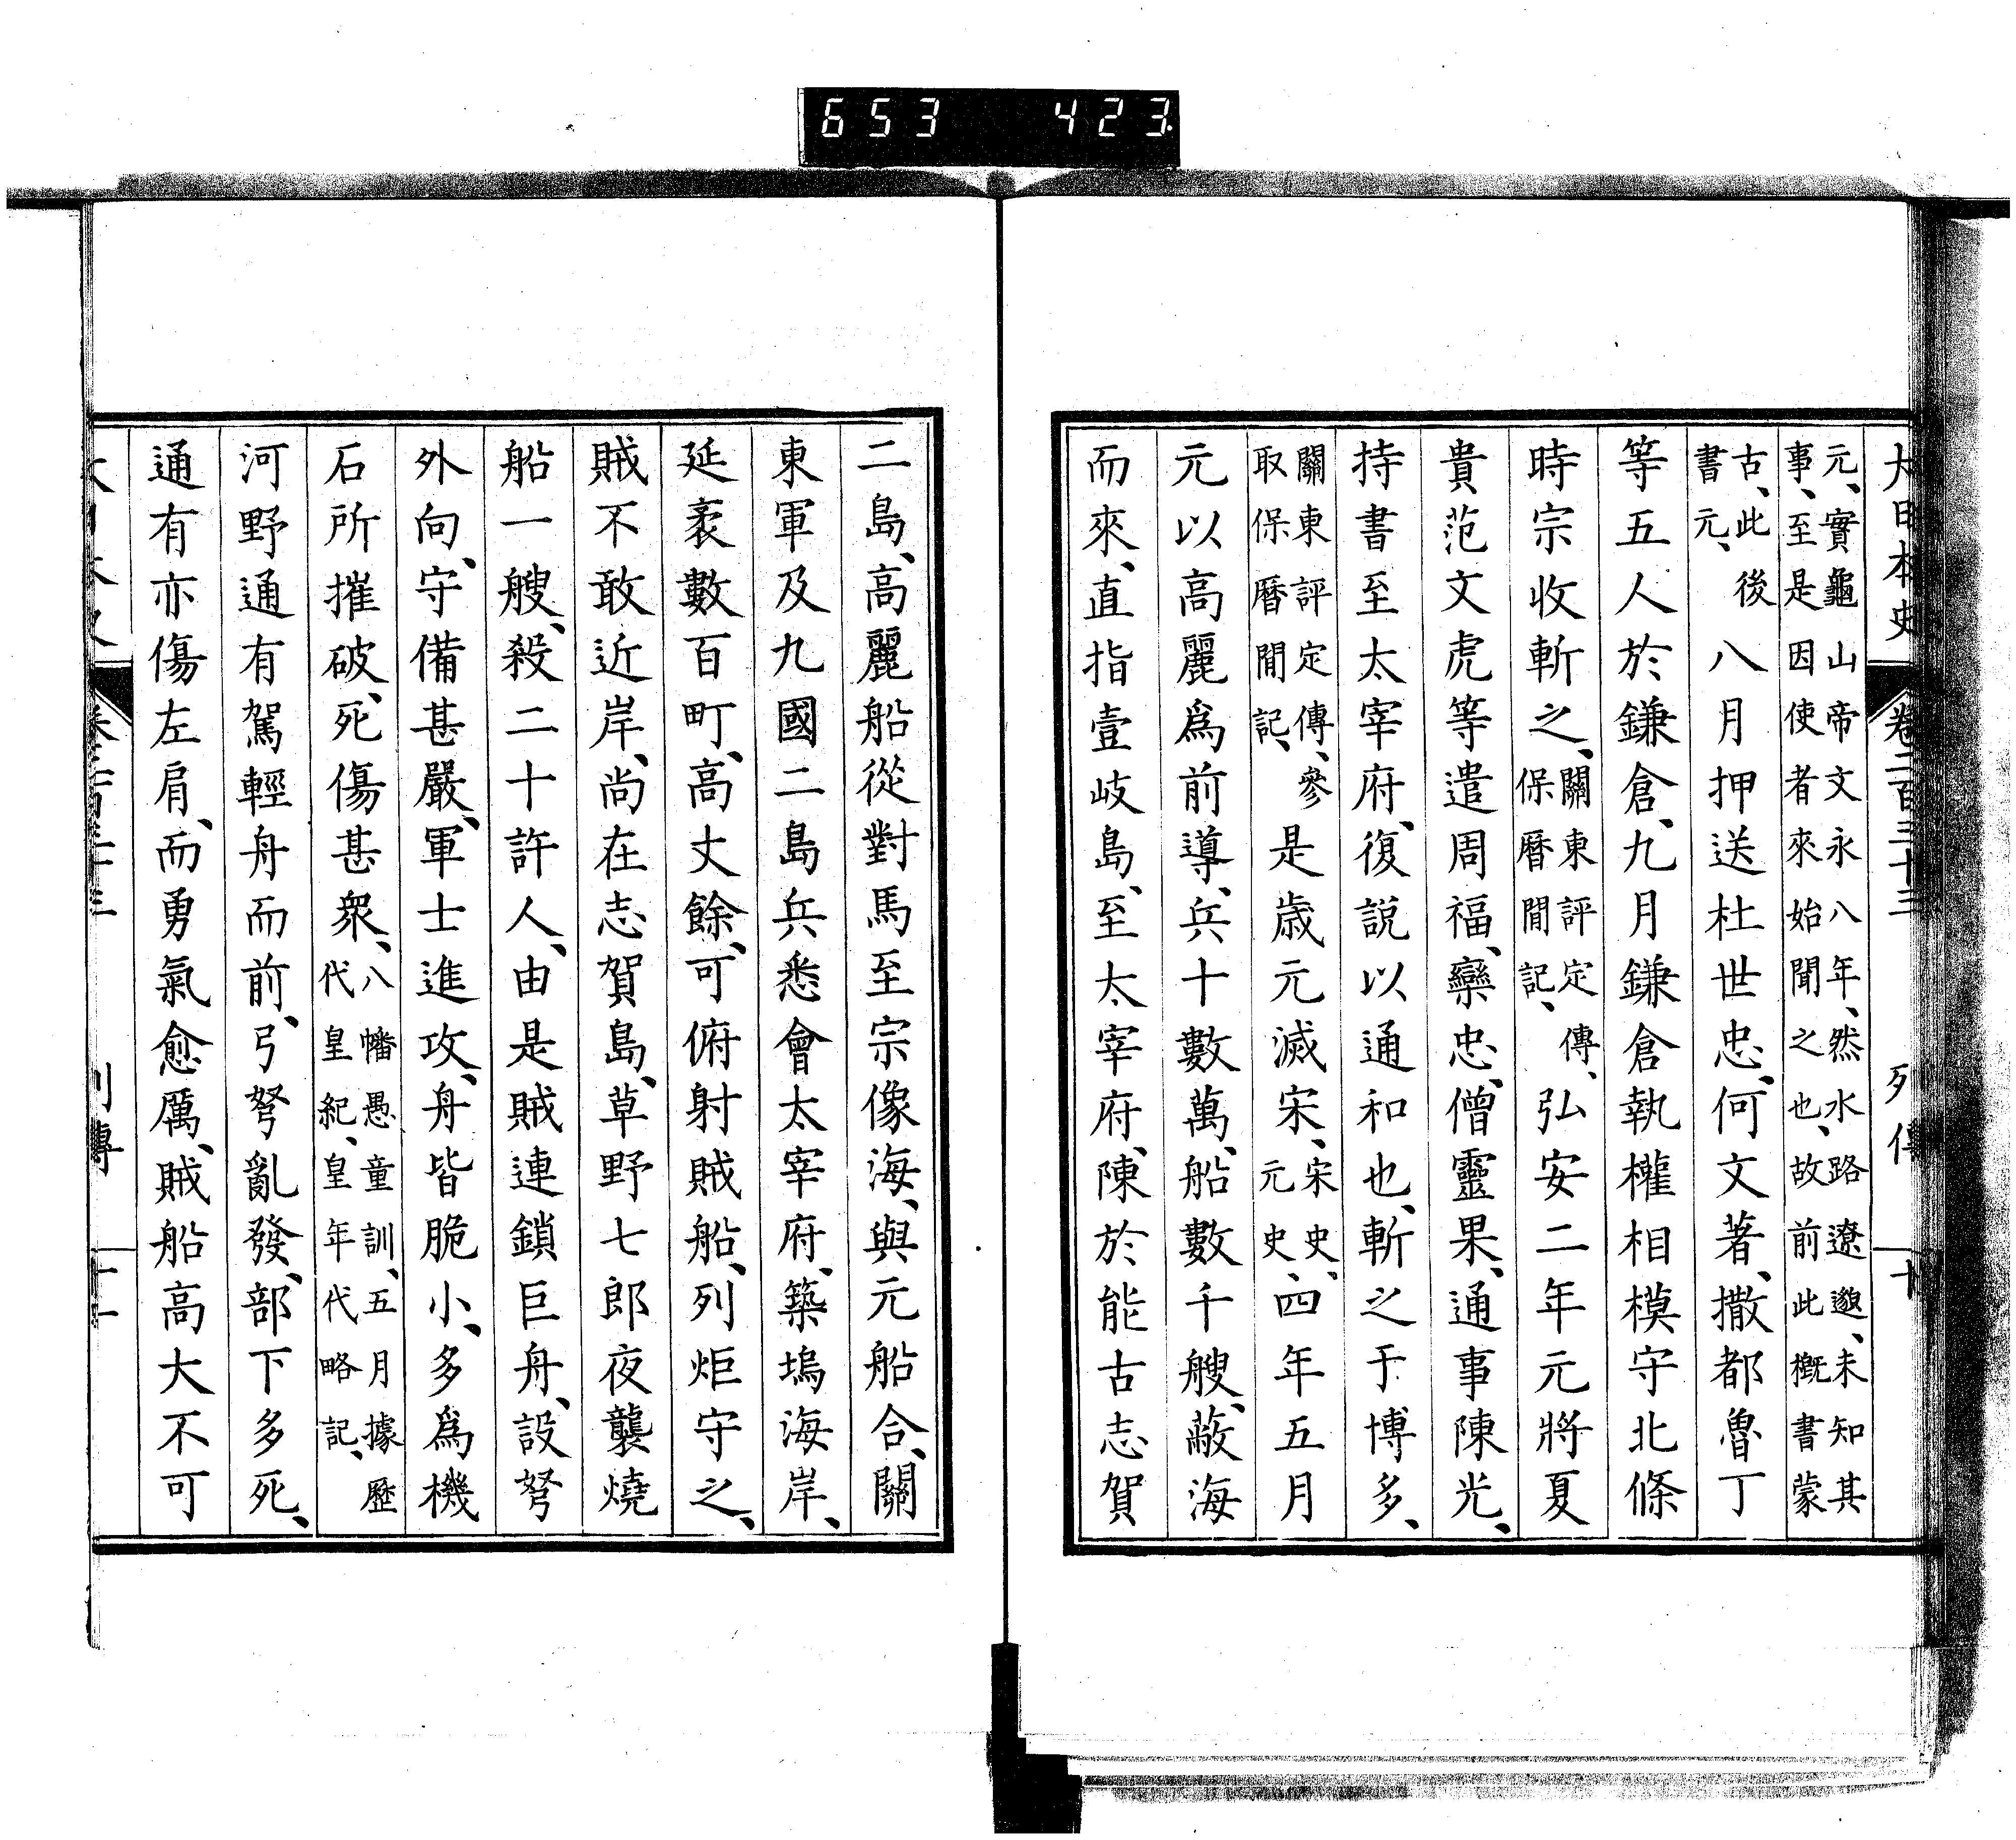 653 423
大日本史 卷二百三十三 列傳 十
元、實龜山帝文永八年、然水路遼邈、未知其
事、至是因使者來始聞之也、故前此檄書蒙
古、此後
書元、
八月押送杜世忠、何文著、撒都魯丁
等五人於鎌倉、九月鎌倉執權相模守北條
時宗收斬之、關東評定傳、保曆間記、弘安二年元將夏
貴范文虎等遣周福、欒忠、僧靈果、通事陳光、
持書至太宰府、復說以通和也、斬之于博多、
關東評定傳、參取保曆間記、是歲元滅宋、宋史、元史、四年五月
元以高麗爲前導、兵十數萬、船數千艘、蔽海
而來、直指壹岐島、至太宰府、陳於能古志賀
二島、高麗船從對馬至宗像海、與元船合、關
東軍及九國二島兵悉會太宰府、築塢海岸、
延袤數百町、高丈餘、可俯射賊船、列炬守之、
賊不敢近岸、尚在志賀島、草野七郎夜襲燒
船一艘、殺二十許人、由是賊連鎖巨舟、設弩
外向、守備甚嚴、軍士進攻、舟皆脆小、多爲機
石所摧破、死傷甚衆、八幡愚童訓、五月據歷代皇紀、皇年代略記、
河野通有駕輕舟而前、弓弩亂發、部下多死、
通有亦傷左肩、而勇氣愈厲、賊船高大不可